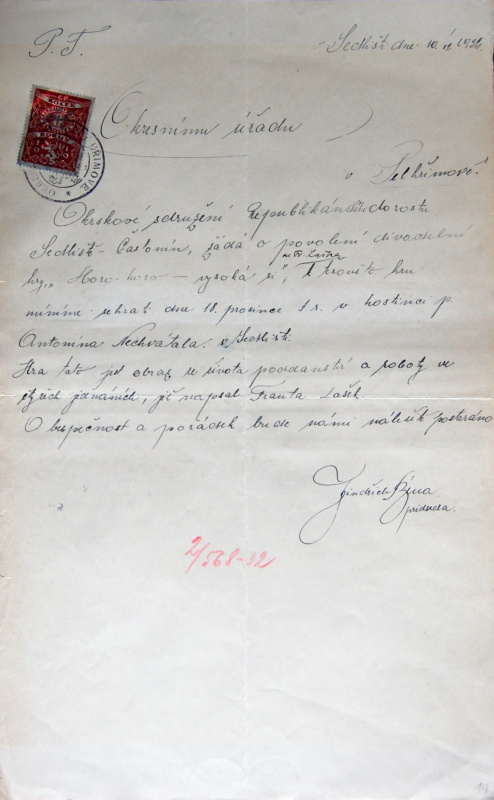 P. T.
Sedliště dne 10. 12. 1932.
Okresnímu úřadu
v Pelhřimově!
Okrskové sdružení Republikánského dorostu
Sedliště-Častonín, žádá o povolení divadelní
hry „Horo-horo – vysoká si",
míníme sehrát dne 18. prosince t. r. v hostinci p.
Antonína Nechvátala v Sedlišti.
Hra tato jest obraz ze života poddanství a roboty ve
čtyřech jednáních, jež napsal Franta Lašek.
O bezpečnost a pořádek bude námi náležitě postaráno
Jindřich
předseda.
2/568-32